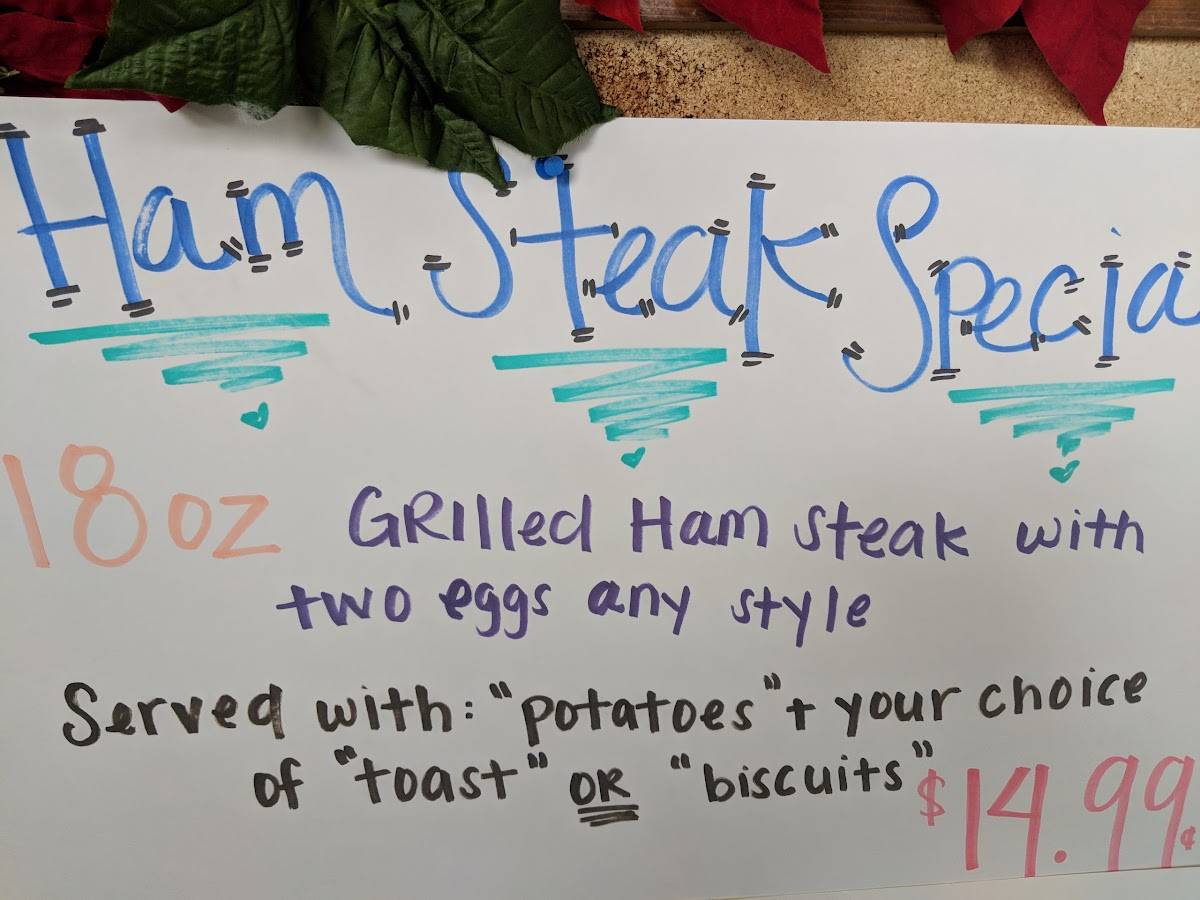 Ham Steak Specia
18oz GRIlled Ham steak with
two eggs any style
Served with: "potatoes" + your choice
of "toast" OR "biscuits"
$14.99¢